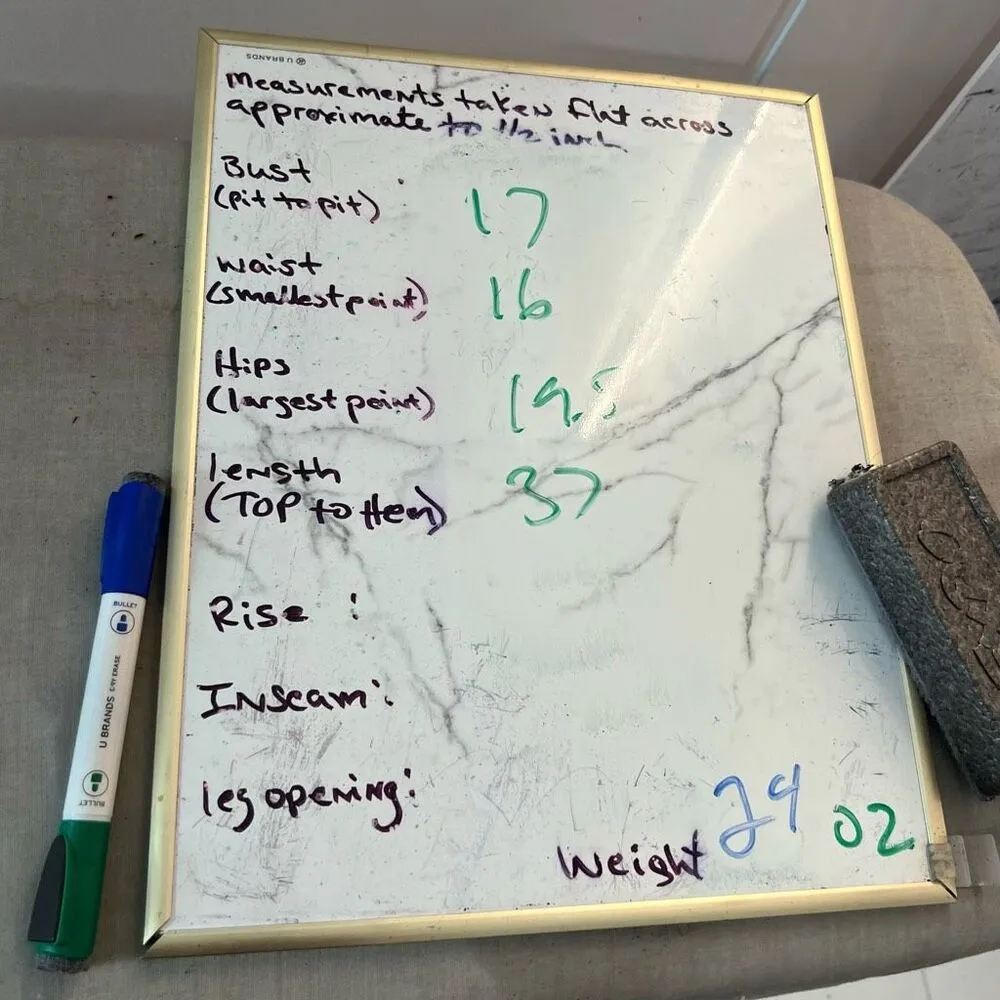 U BRANDS
Measurements taken flat across
approximate to 1/2 inch
Bust
(pit to pit) 17
waist
(smallest point) 16
Hips
(largest point) 19.5
length
(TOP to Hem) 37
Rise :
Inseam:
leg opening:
Weight 24 02
BULLET
U BRANDS DRY ERASE
BULLET